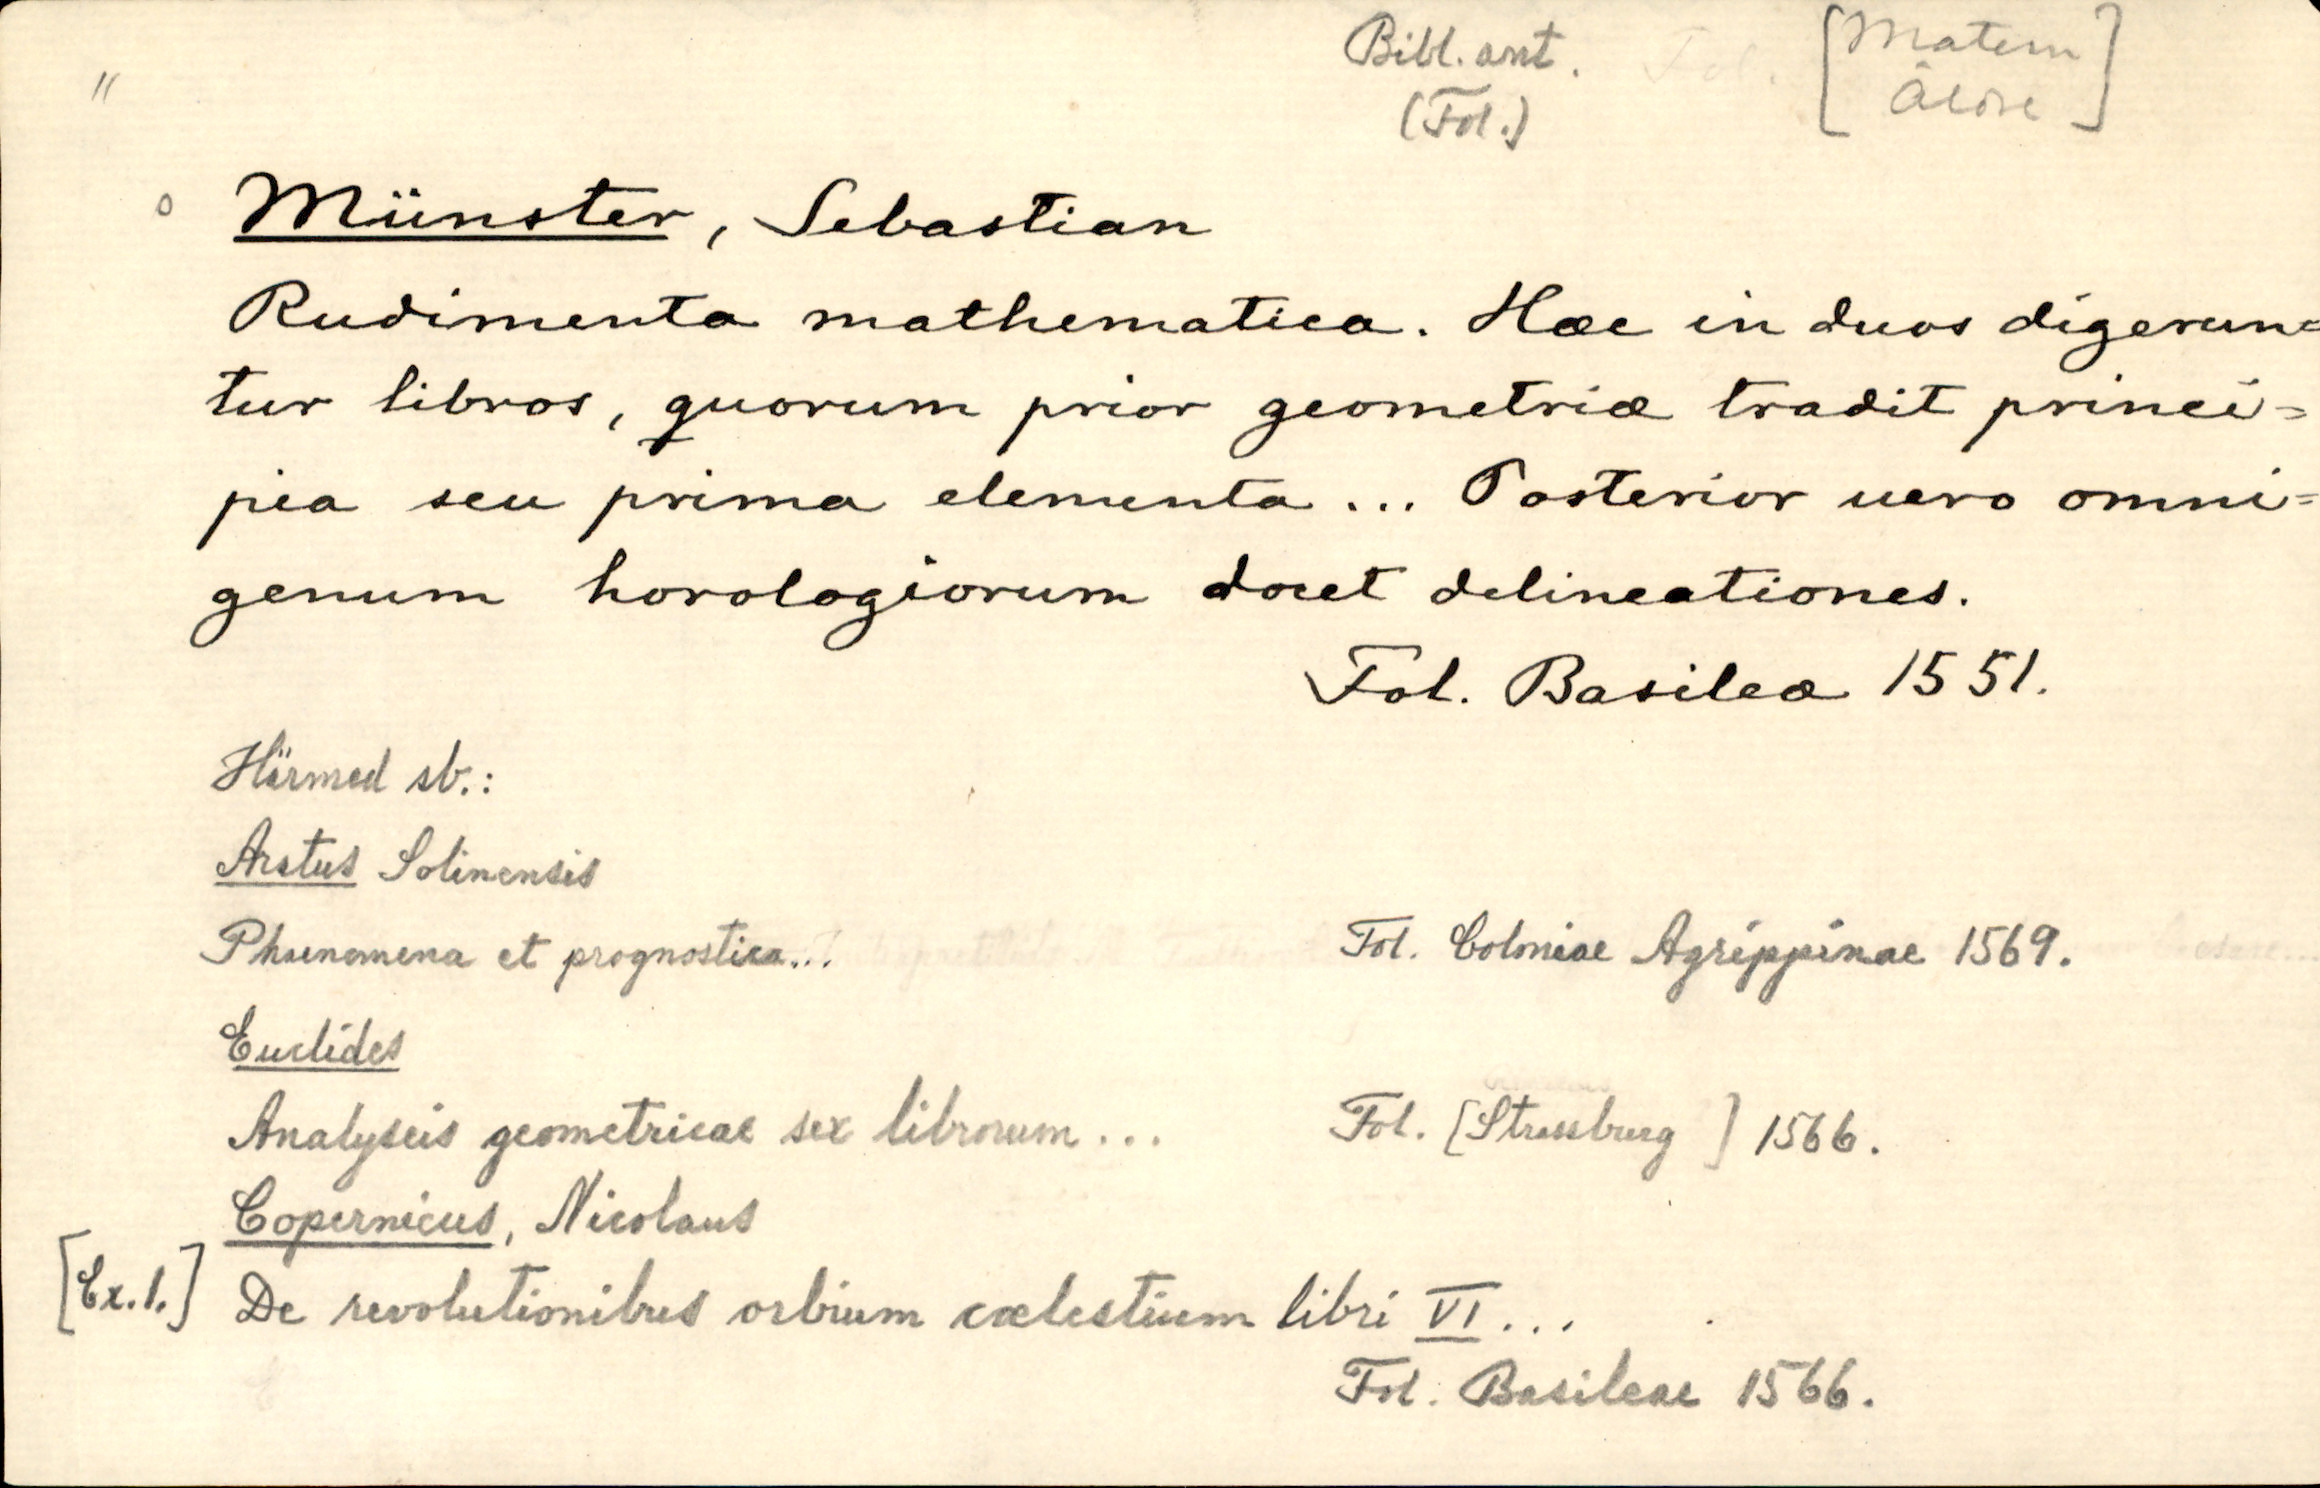 Bibl. ant. [Matem
(Fol.) Äldre]
"
Münster, Sebastian
Rudimenta mathematica. Hæc in duos digerun=
tur libros, quorum prior geometriæ tradit princi=
pia seu prima elementa ... Posterior uero omni=
genum horologiorum docet delineationes.
Fol. Basileæ 1551.
Härmed sb.:
Aratus Solinensis
Phaenomena et prognostica... Fol. Coloniae Agrippinae 1569.
Euclides
Analyseis geometricae sex librorum ... Fol. [Strassburg ] 1566.
Copernicus, Nicolaus
[Ex. 1.] De revolutionibus orbium cœlestium libri VI ...
Fol. Basileae 1566.